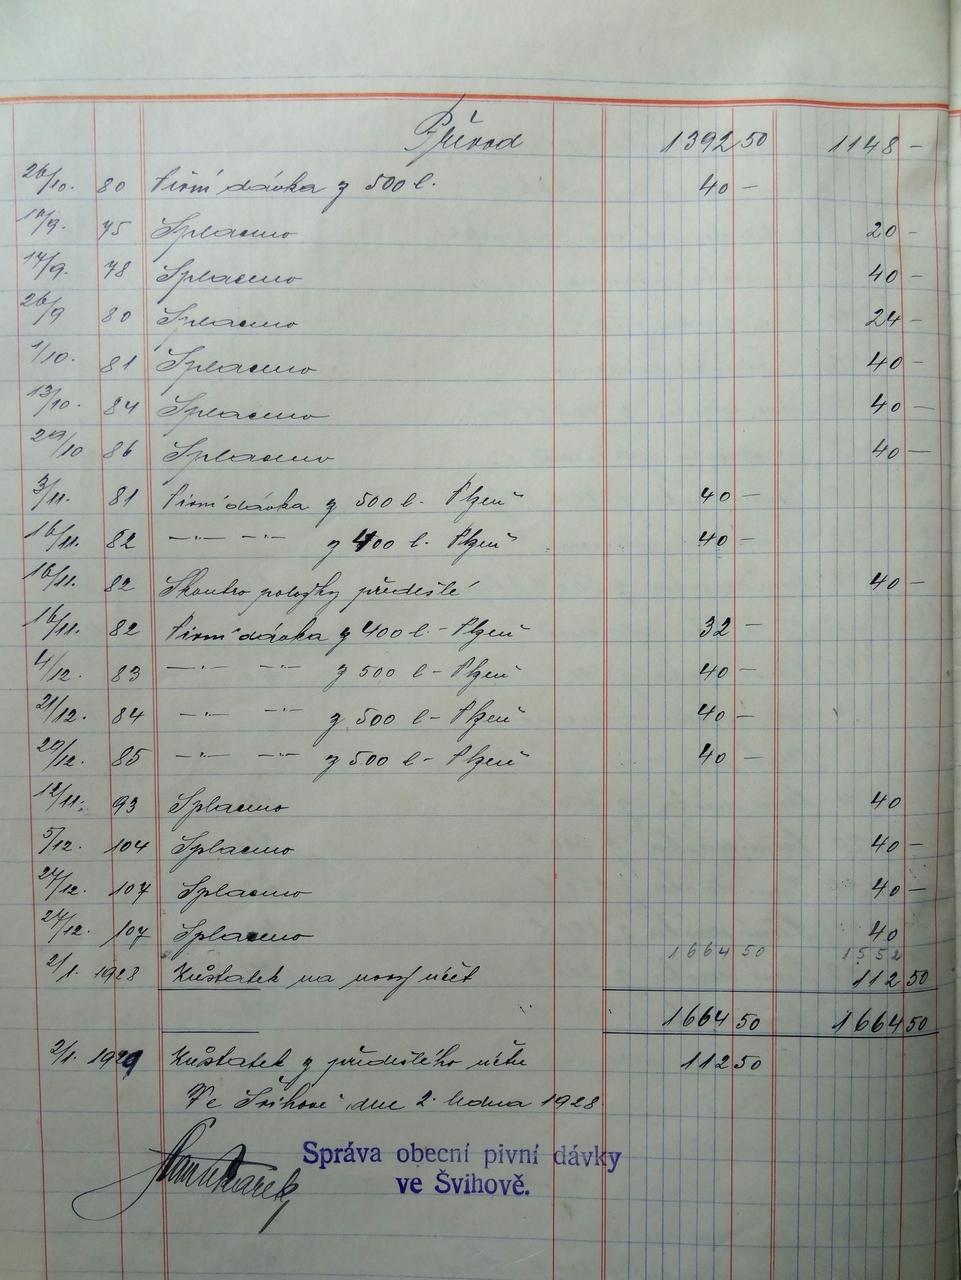 Převod 1392 50 1148 -
26/10. 80 Pivní dávka z 500 l. 40 -
17/9. 75 Splaceno 20 -
17/9. 78 Splaceno 40 -
26/9 80 Splaceno 24 -
1/10. 81 Splaceno 40 -
13/10. 84 Splaceno 40 -
29/10 86 Splaceno 40 -
3/11. 81 Pivní dávka z 500 l. Plzeň 40 -
16/11. 82 -"- -"- z 400 l. Plzeň 40 -
16/11. 82 Skontro položky předešlé 40 -
16/11. 82 Pivní dávka z 400 l - Plzeň 32 -
4/12. 83 -"- -"- z 500 l - Plzeň 40 -
21/12. 84 -"- -"- z 500 l - Plzeň 40 -
29/12. 85 -"- -"- z 500 l - Plzeň 40 -
12/11. 93 Splaceno 40
5/12. 104 Splaceno 40 -
27/12. 107 Splaceno 40 -
27/12. 107 Splaceno 40
1664 50 1552
2/1. 1928 Zůstatek na nový účet 112 50
1664 50 1664 50
2/1. 1929 Zůstatek z předešlého účtu 112 50
Ve Švihově dne 2. ledna 1928.
Správa obecní pivní dávky
ve Švihově.